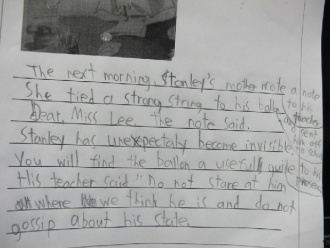 The next morning, Stanley's mother wrote a note
to his teacher and sent him off to school
She tied a strong string to his ballon
Dear, Miss Lee, the note said.
Stanley has unexpectaly become invisible
You will find the ballon a usefull guide to his presence
His teacher said "Do not stare at him
where we think he is and do not
gossip about his state.